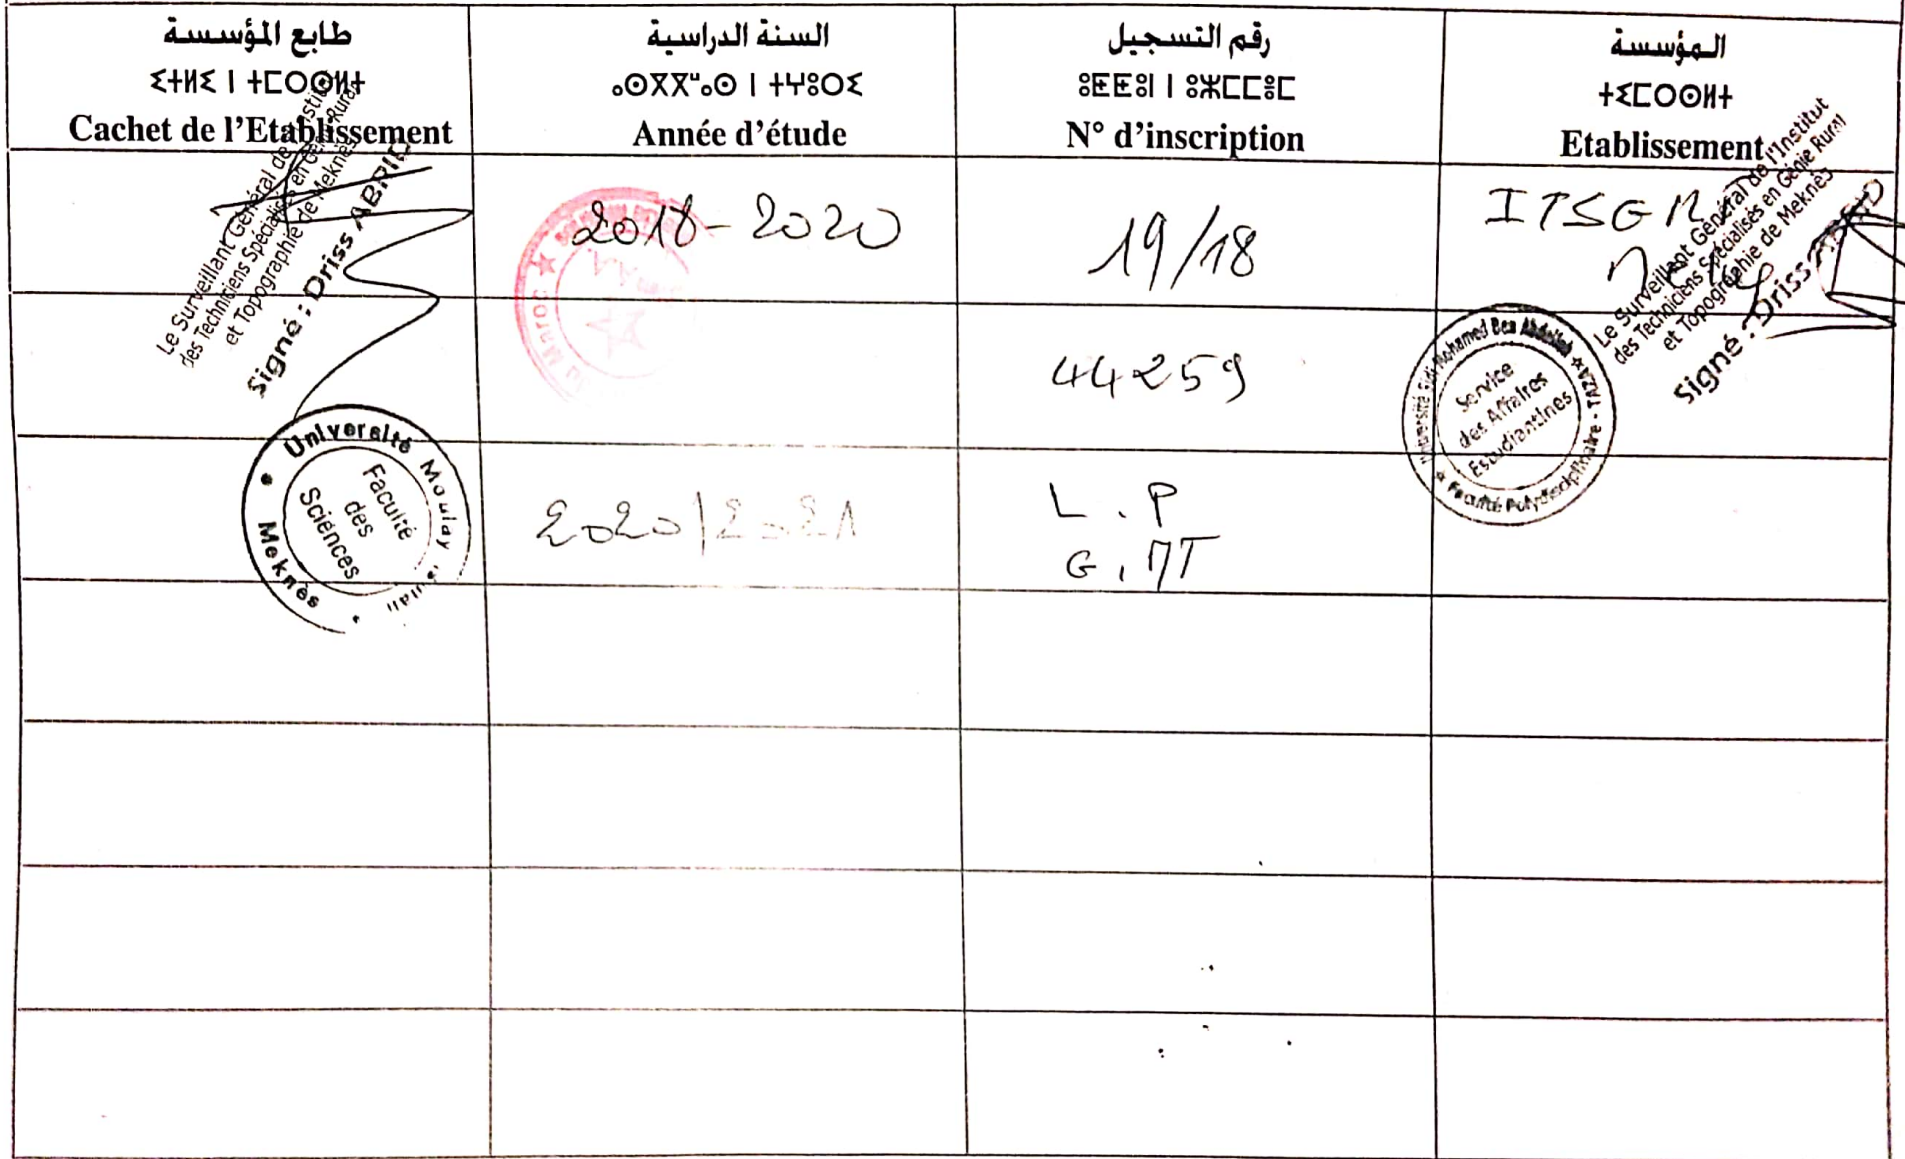 طابع المؤسسة
ⵉⵜⵍⵉ ⵏ ⵜⵎⵔⵙⵍⵜ
Cachet de l'Etablissement
السنة الدراسية
ⴰⵙⴳⴳⵯⴰⵙ ⵏ ⵜⵖⵓⵔⵉ
Année d'étude
رقم التسجيل
ⵓⵟⵟⵓⵏ ⵏ ⵓⵣⵎⵎⵓⵎ
N° d'inscription
المؤسسة
ⵜⵉⵎⵔⵙⵍⵜ
Etablissement
Le Surveillant Général de l'Institut
des Techniciens Spécialisés en Génie Rural
et Topographie de Meknès
Signé : Driss
2018-2020
19/18
ITSGR
Le Surveillant Général de l'Institut
des Techniciens Spécialisés en Génie Rural
et Topographie de Meknès
Signé : Driss
du Maroc
44259
Université Sidi Mohamed Ben Abdellah - TAZA
Service
des Affaires
Estudiantines
Faculté Polydisciplinaire
Université Moulay
Faculté
des
Sciences
Meknès
2020/2021
L.P
G.MT